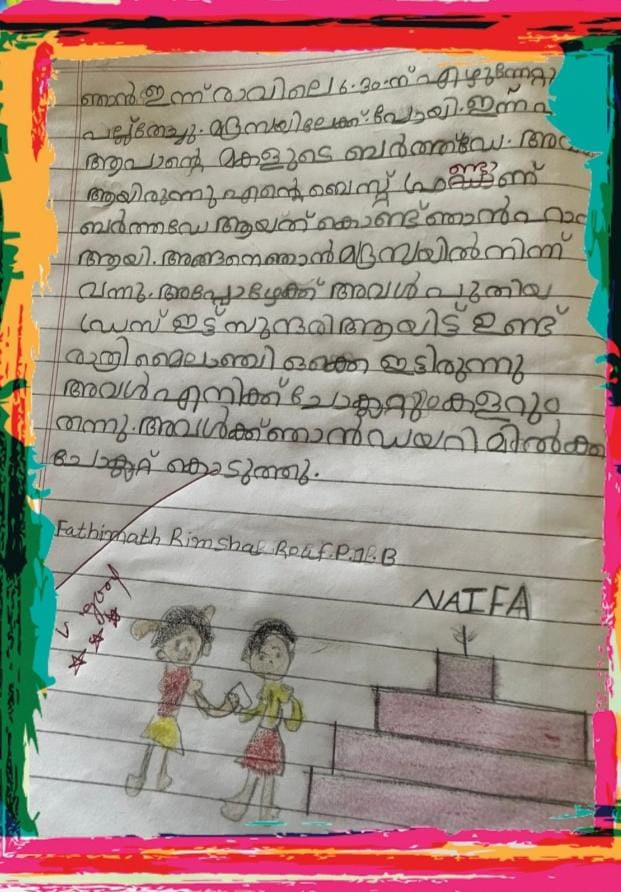 ഞാൻ ഇന്ന് രാവിലെ 6.30.ന് എഴുന്നേറ്റു
പല്ല്തേച്ചു. മദ്രസയിലേക്ക് പോയി. ഇന്ന്
ആപാൻ്റെ മകളുടെ ബർത്ത്ഡേ.
ആയിരുന്നു എൻ്റെ ബെസ്റ്റ് ഫ്രണ്ടാണ്
ബർത്തഡേ ആയത് കൊണ്ട് ഞാൻ
ആയി. അങ്ങനെ ഞാൻ മദ്രസയിൽ നിന്ന്
വന്നു. അപ്പോഴേക്ക് അവൾ പുതിയ
ഡ്രസ് ഇട്ട് സുന്ദരി ആയിട്ട് ഉണ്ട്
രാത്രി മൈലാഞ്ചി ഒക്കെ ഇട്ടിരുന്നു
അവൾ എനിക്ക് ചോക്ലേറ്റും കളറും
തന്നു. അവൾക്ക് ഞാൻ ഡയറി മിൽക്ക
ചോക്ലേറ്റ് കൊടുത്തു.
Fathimath Rimsha Rauf.P.
v good
NAIFA